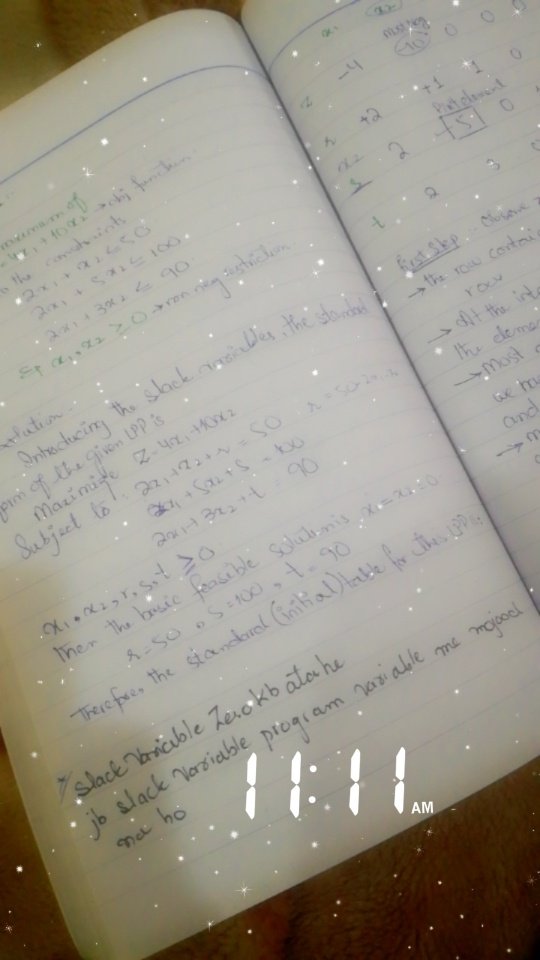 maximum of
4x1 + 10x2 → obj function
to the constraints
2x1 + x2 ≤ 50
2x1 + 5x2 ≤ 100
2x1 + 3x2 ≤ 90
x1, x2 ≥ 0 → non neg restriction
Introducing the slack variables, the standard
form of the given LPP is
Maximize Z = 4x1 + 10x2
Subject to 2x1 + x2 + r = 50 r = 50 - 2x1 - x2
2x1 + 5x2 + s = 100
2x1 + 3x2 + t = 90
x1, x2, r, s, t ≥ 0
then the basic feasible solution is x1 = x2 = 0
r = 50, s = 100, t = 90
Therefore the standard (initial) table for this LPP is
* Slack variable Zero kb ata he
jb slack variable program variable me mojood
na ho
x1 x2
most neg
Z -4 -10 0 0 0
r +2 +1 1 0
Pivot element
s 2 5 0
t 2 3 0
First Step :-
→ the row
row
→ At the
the
→ Most
we
and
11:11 AM